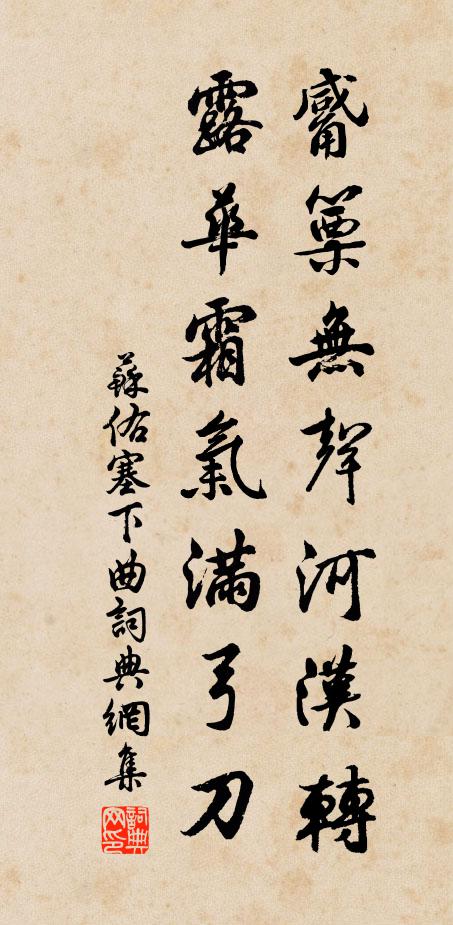 觱篥無聲河漢轉
露華霜氣滿弓刀
蘇佑塞下曲詞典網集
詞典网印